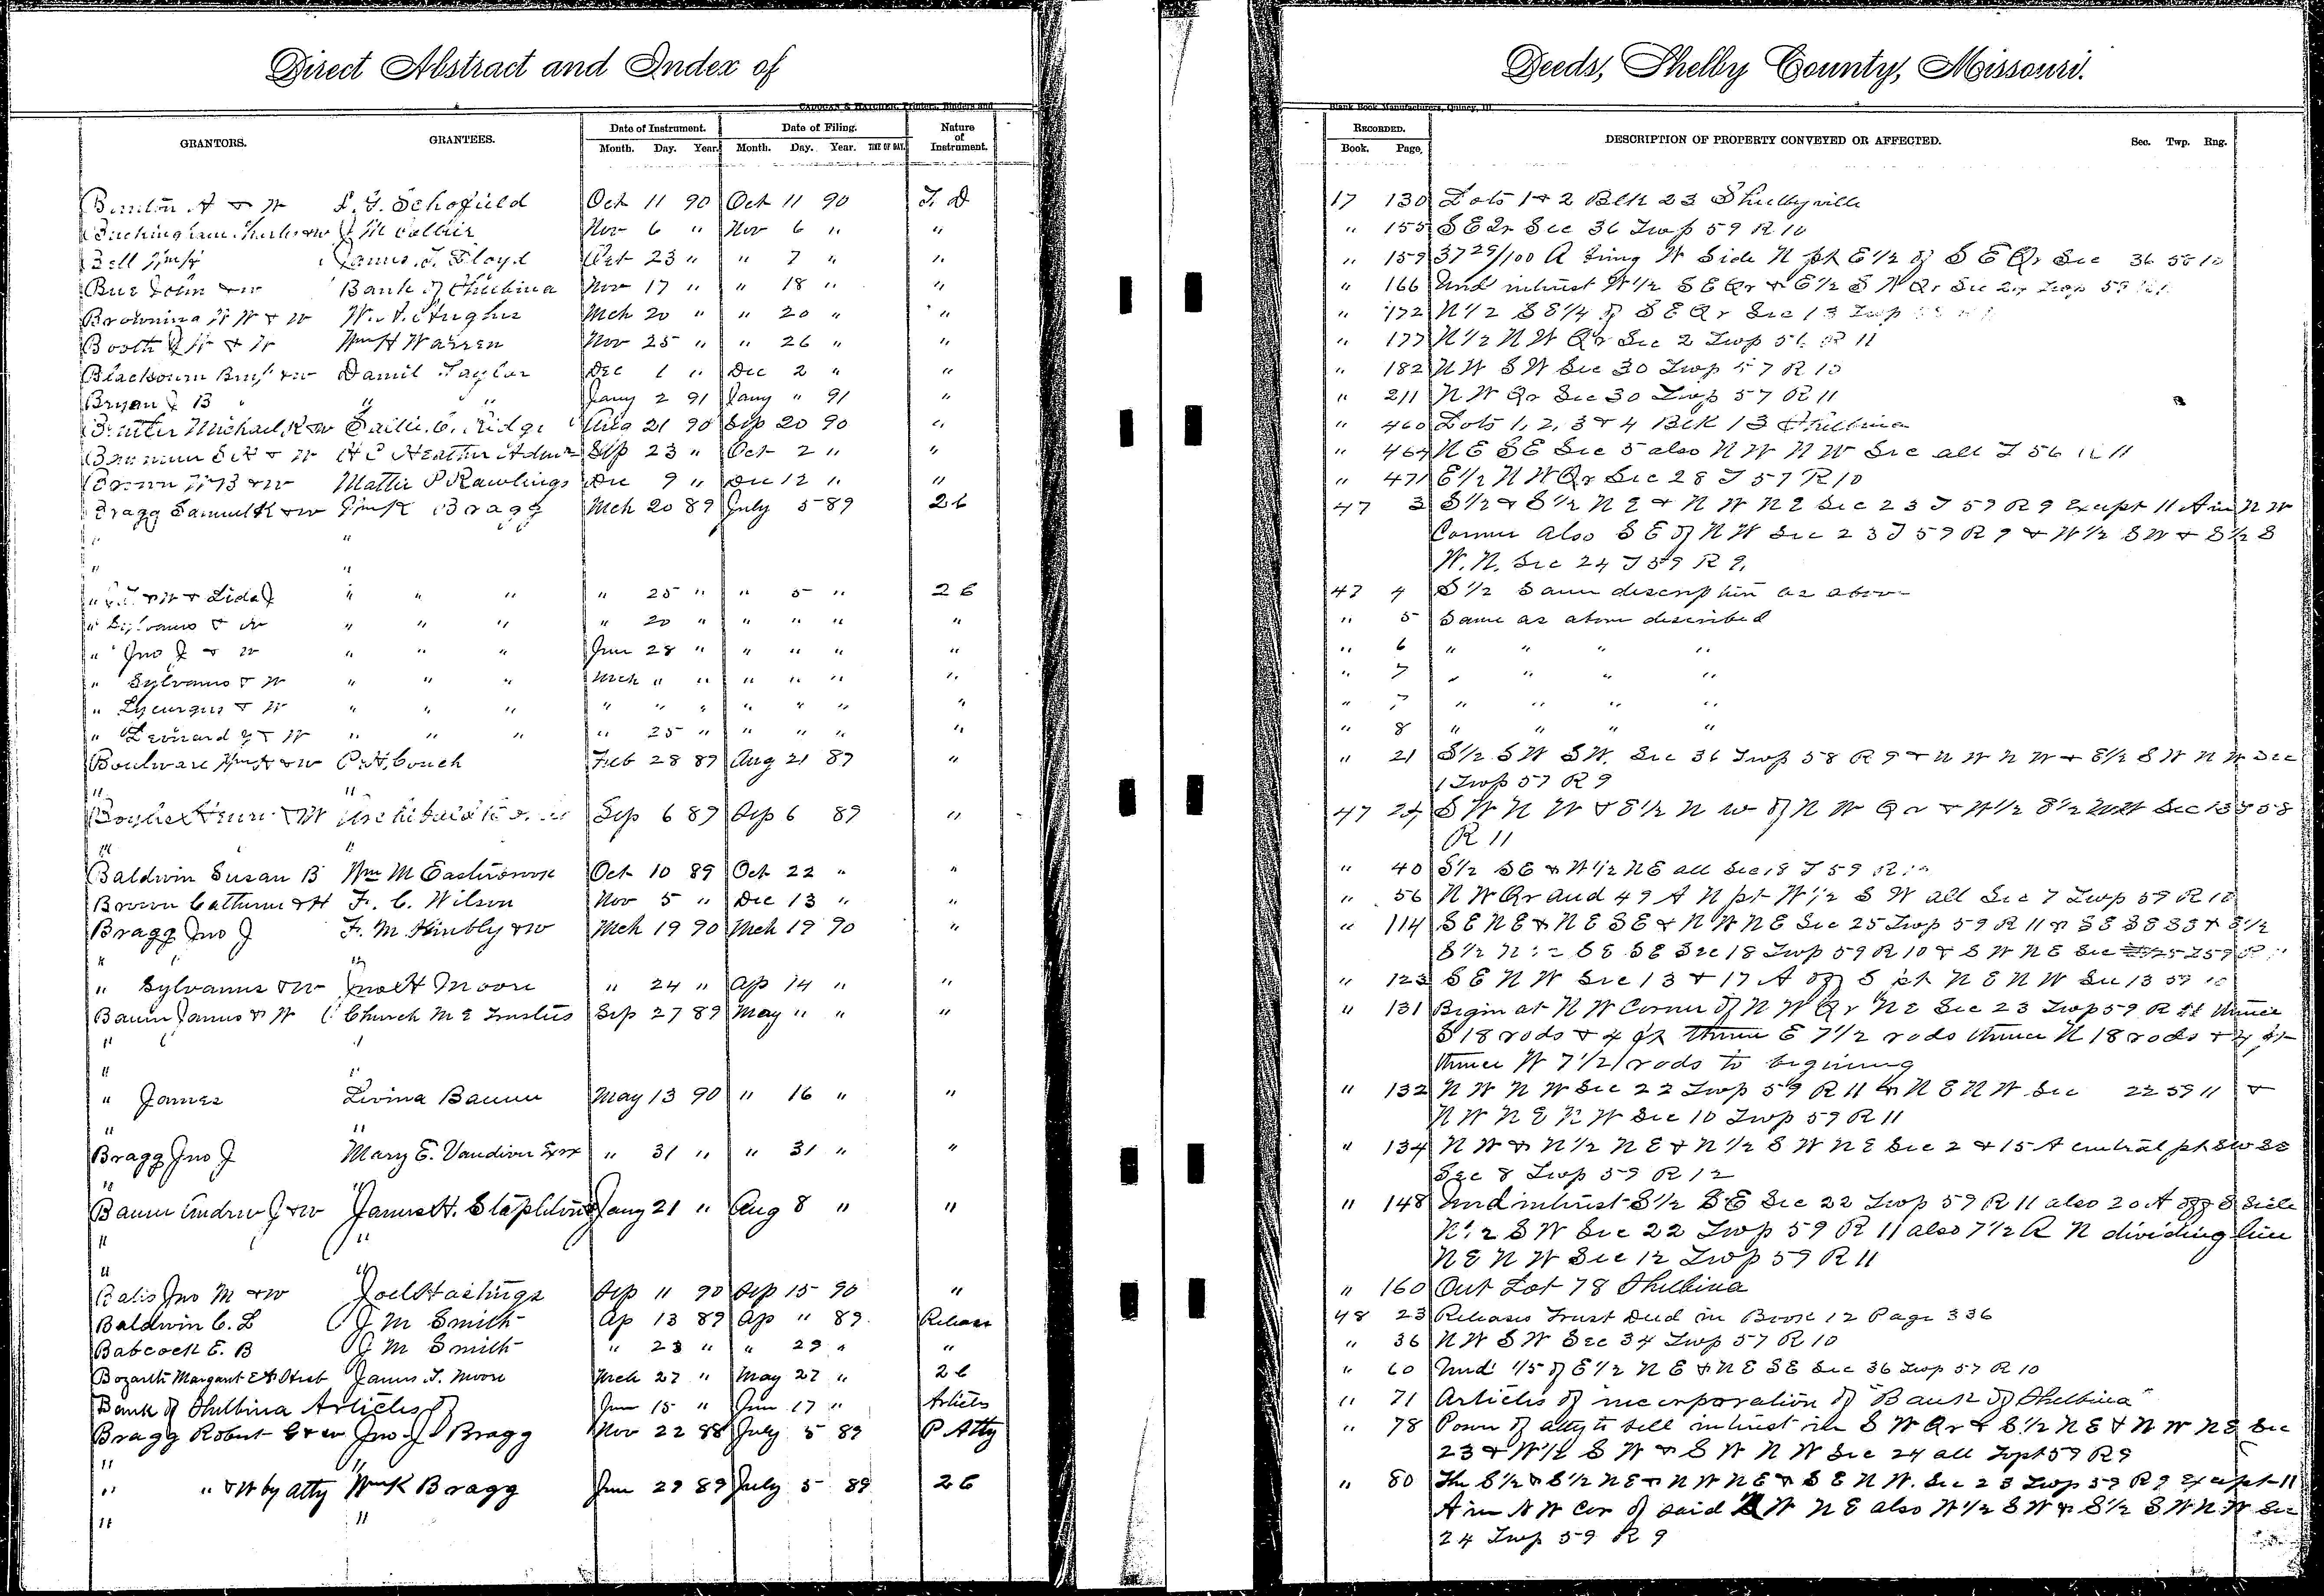 Direct Abstract and Index of Deeds, Shelby County, Missouri.
CADOGAN & HATCHER, Printers, Binders and Blank Book Manufacturers, Quincy, Ill.
GRANTORS. GRANTEES. Date of Instrument. Date of Filing. Nature of Instrument. RECORDED. DESCRIPTION OF PROPERTY CONVEYED OR AFFECTED. Sec. Twp. Rng.
Month. Day. Year. Month. Day. Year. TIME OF DAY. Book. Page.
A & W Schofield Oct 11 90 Oct 11 90 T. D 17 130 Lots 1 & 2 Blk 23 Shelbyville
J M Collier Nov 6 " Nov 6 " " " 155 S E Qr Sec 36 Twp 59 R 10
Bell James T. Floyd Oct 23 " " 7 " " " 159 37 29/100 A W Side N pt E 1/2 of S E Qr Sec 36 58 10
John & W Bank of Shelbina Nov 17 " " 18 " " " 166 Und interest W 1/2 S E Qr & E 1/2 S W Qr Sec 24 Twp 59
Browning W W & W Hughes Mch 20 " " 20 " " " 172 N 1/2 S E 1/4 of S E Qr Sec 13 Twp
Booth J W & W Wm H Warren Nov 25 " " 26 " " " 177 N 1/2 N W Qr Sec 2 Twp 56 R 11
Blackburn & W Daniel Taylor Dec 1 " Dec 2 " " " 182 N W S W Sec 30 Twp 57 R 10
Bryan J B " " " Jany 2 91 Jany " 91 " " 211 N W Qr Sec 30 Twp 57 R 11
Michael K & W Sallie C. Ridge Aug 21 90 Sep 20 90 " " 460 Lots 1, 2, 3 & 4 Blk 13 Shelbina
& W H C Heather Sep 23 " Oct 2 " " " 464 N E S E Sec 5 also N W N W Sec all T 56 R 11
Brown & W Mattie P Rawlings Dec 9 " Dec 12 " " " 471 E 1/2 N W Qr Sec 28 T 57 R 10
Bragg Samuel K & W Wm K Bragg Mch 20 89 July 5 89 2 C 47 3 S 1/2 & S 1/2 N E & N W N E Sec 23 T 59 R 9 Except 11 A in N W
" " Corner also S E of N W Sec 23 T 59 R 9 & W 1/2 S W & S 1/2 S
" " W. N. Sec 24 T 59 R 9.
" & W & Lida J " " " " 25 " " 5 " 2 C 47 4 S 1/2 Same description as above
" Sylvanus & W " " " " 20 " " " " " " 5 Same as above described
" Jno J & W " " " Jun 28 " " " " " " 6 " " " "
" Sylvanus & W " " " Mch " " " " " " " 7 " " " "
" Lycurgus & W " " " " " " " " " " " 7 " " " "
" Leonard & W " " " " 25 " " " " " " 8 " " " "
Boulware Wm H & W C. H. Couch Feb 28 89 Aug 21 89 " " 21 S 1/2 S W S W. Sec 36 Twp 58 R 9 & N W N W & E 1/2 S W N W Sec
" " 1 Twp 57 R 9
& W Archibald Sep 6 89 Sep 6 89 " 47 S W N W & S 1/2 N W of N W Qr & W 1/2 Sec 13 58
" " R 11
Baldwin Susan B Wm M Oct 10 89 Oct 22 " " " 40 S 1/2 S E & W 1/2 N E all Sec 18 T 59 R
Brown Catherine & H F. C. Wilson Nov 5 " Dec 13 " " " 56 N W Qr and 49 A N pt W 1/2 S W all Sec 7 Twp 59 R 10
Bragg Jno J F. M. Kimbly & W Mch 19 90 Mch 19 90 " " 114 S E N E & N E S E & N W N E Sec 25 Twp 59 R 11 &
" " S E S E Sec 18 Twp 59 R 10 & S W N E Sec 25 T 59 R
" Sylvanus & W Jno H Moore " 24 " Ap 14 " " " 123 S E N W Sec 13 & 17 A off S pt N E N W Sec 13 59 10
Baum James & W Church M E Trustees Sep 27 89 May " " " " 131 Begin at N W Corner of N W Qr N E Sec 23 Twp 59 R 11 thence
" " S 18 rods & 4 ft thence E 7 1/2 rods thence N 18 rods & 4 ft
" " thence W 7 1/2 rods to begining
" James Livina Baum May 13 90 " 16 " " " 132 N W N W Sec 22 Twp 59 R 11 & N E N W Sec 22 59 11 &
" " N W N E N W Sec 10 Twp 59 R 11
Bragg Jno J Mary E. Vandiver Exx " 31 " " 31 " " " 134 N W & N 1/2 N E & N 1/2 S W N E Sec 2 & 15 A central pt S W S E
" " Sec 8 Twp 59 R 12
Baum Andrew J & W James H. Jany 21 " Aug 8 " " " 148 Und interest S 1/2 S E Sec 22 Twp 59 R 11 also 20 A off S Side
" " N 1/2 S W Sec 22 Twp 59 R 11 also 7 1/2 A N dividing line
" " N E N W Sec 12 Twp 59 R 11
Bates Jno M & W Joel Hastings Sep 11 90 Sep 15 90 " " 160 Out Lot 78 Shelbina
Baldwin C. L J M Smith Ap 13 89 Ap " 89 Release 48 23 Releases Trust Deed in Book 12 Page 336
Babcock E. B J M Smith " 23 " " 29 " " " 36 N W S W Sec 34 Twp 57 R 10
Bozarth Margaret E & Husb James T. Moore Mch 27 " May 27 " 2 C " 60 Und 1/5 of E 1/2 N E & N E S E Sec 36 Twp 57 R 10
Bank of Shelbina Articles of Jun 15 " Jun 17 " Articles " 71 Articles of incorporation of "Bank of Shelbina"
Bragg Robert & W Jno J Bragg Nov 22 88 July 5 89 P. Atty " 78 Power of atty to sell interest in S W Qr & S 1/2 N E & N W N E Sec
" " 23 & W 1/2 S W & S W N W Sec 24 all Twp 59 R 9
" " & W by atty Wm K Bragg Jun 29 89 July 5 89 2 C " 80 The S 1/2 & S 1/2 N E & N W N E & S E N W. Sec 23 Twp 59 R 9 Except 11
" " A in N W Cor of said N W N E also W 1/2 S W & S 1/2 S W N W Sec
24 Twp 59 R 9